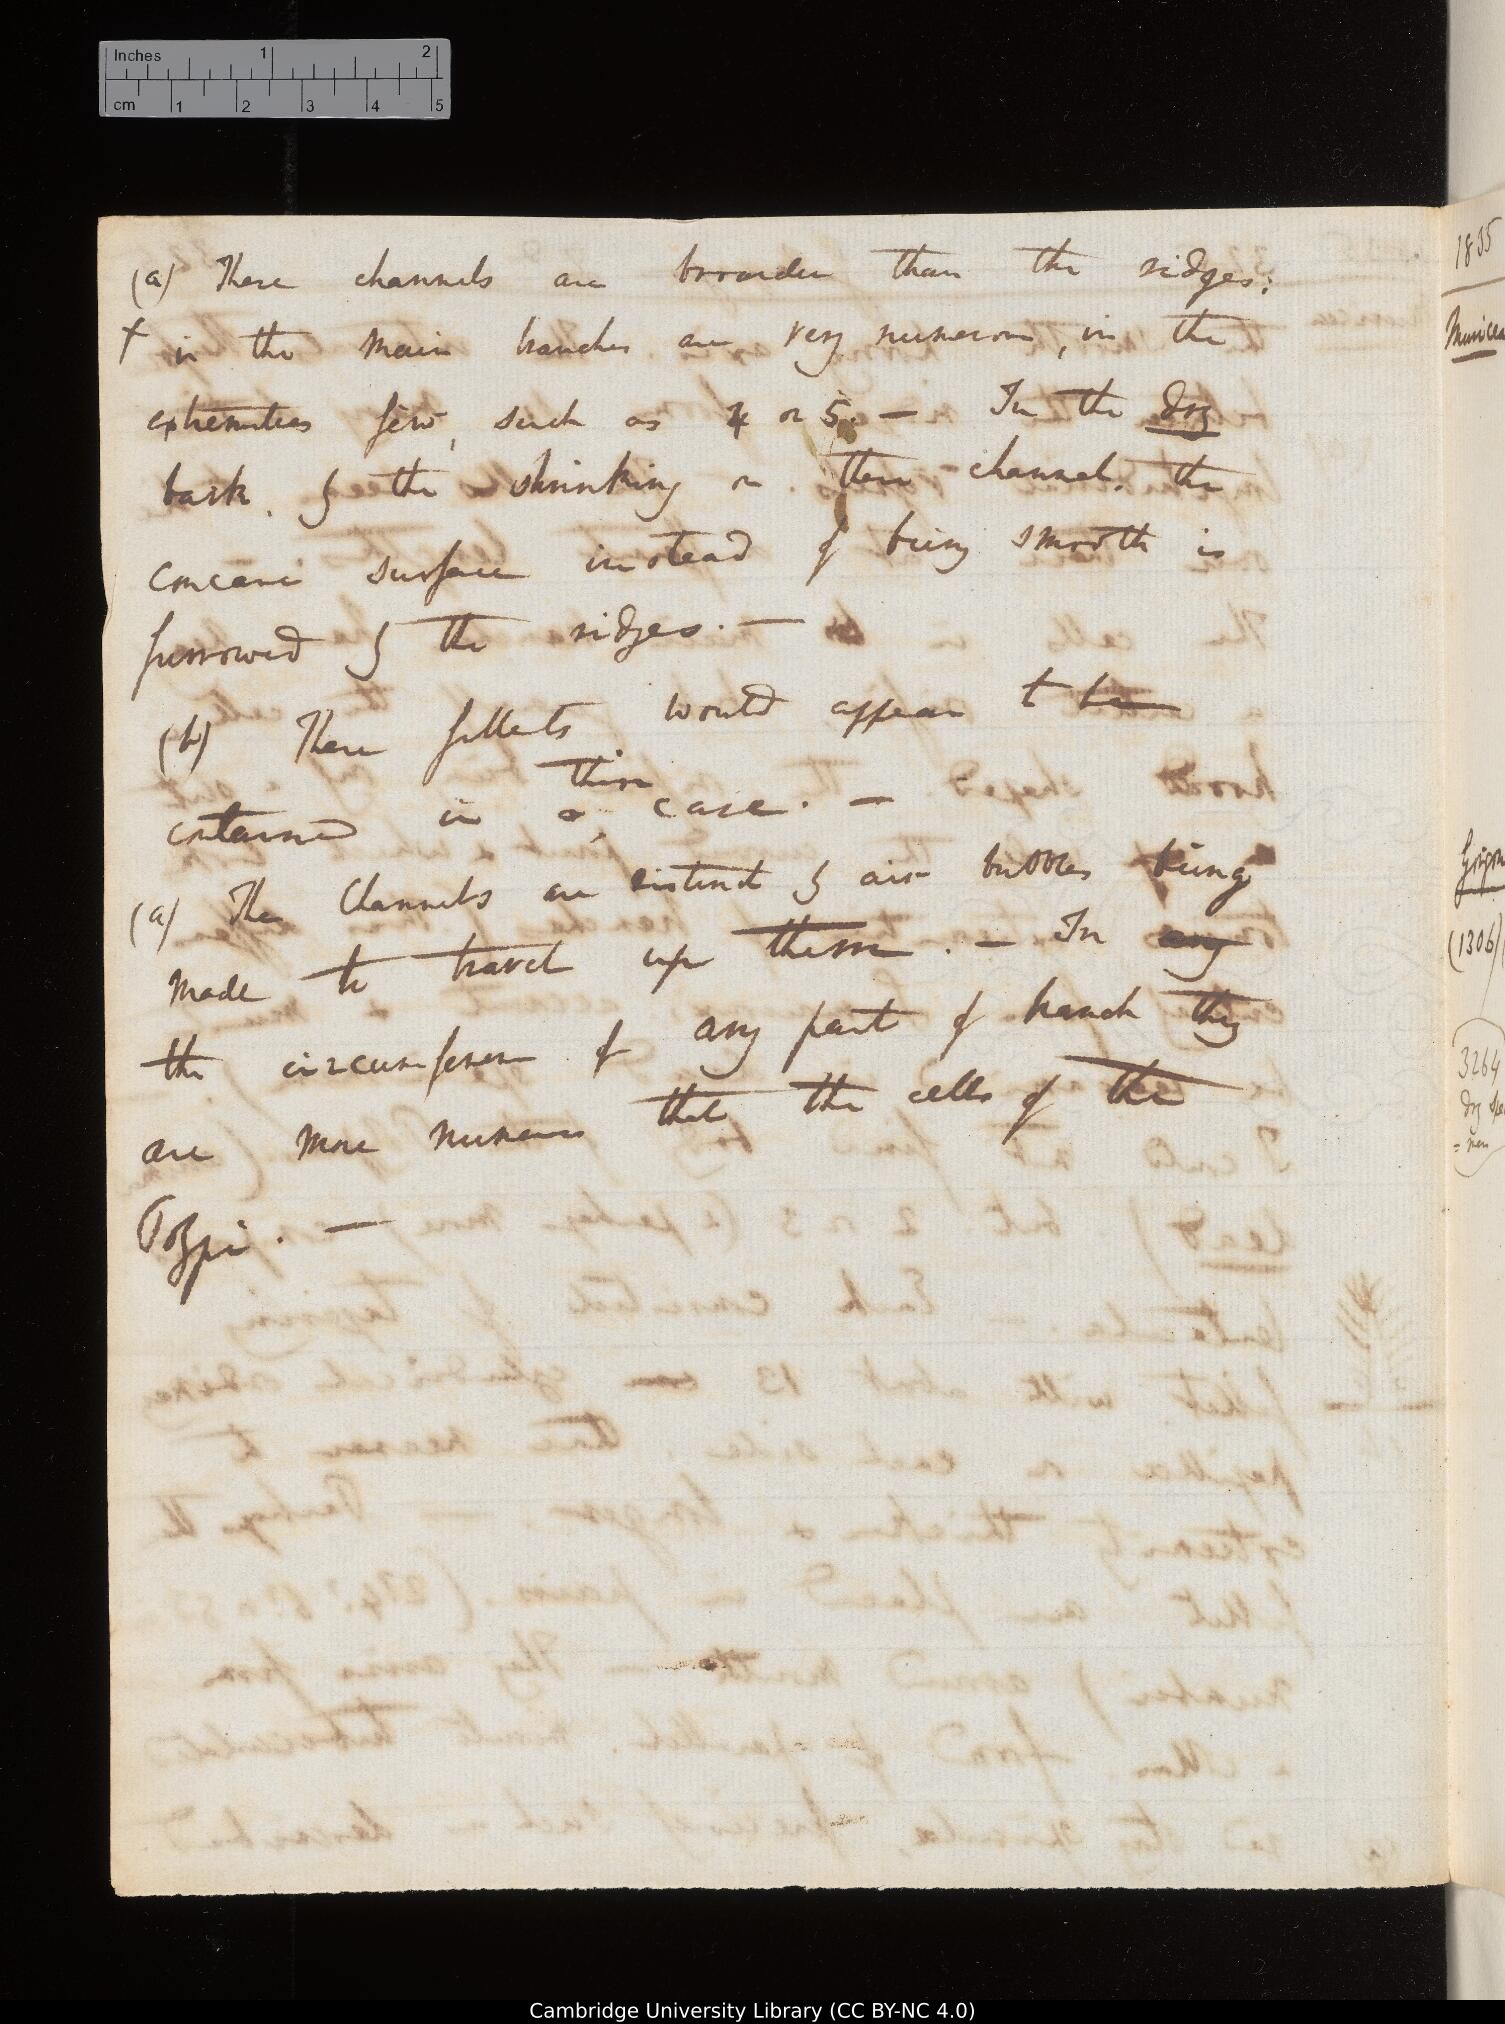 Inches 1 2
cm 1 2 3 4 5
(a) These channels are broarder than the ridges:
+ in the main branches are very numerous, in the
extremities few, such as 4 or 5. — In the dry
bark, by the shrinking on these channels, the
concave surface instead of being smooth is
furrowed by the ridges. —
(b) These fillets would appear to be
thin
contained in a case. —
(a) The Channels are distinct by air bubbles being
made to travel up them. — In any
the circumference of any part of branch they
are more numerous that the cells of the
Polypi. —
1835
(1306)
3264
dry Spe
= men
Cambridge University Library (CC BY-NC 4.0)